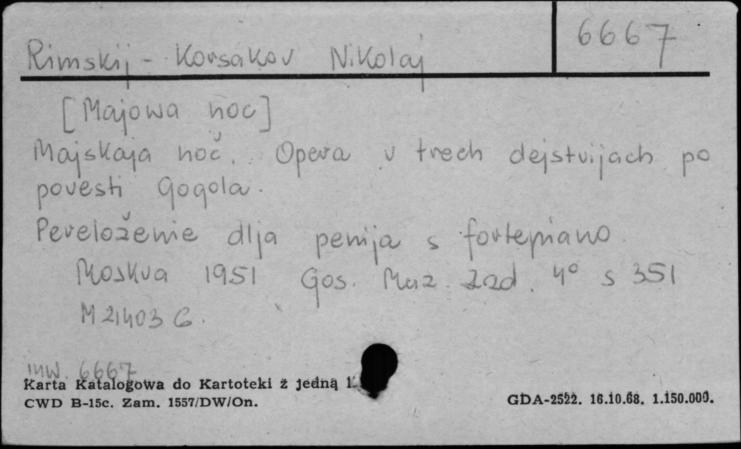 Rimskij - Korsakov Nikolaj 6667
[Majowa noc]
Majskaja noč. Opera v trech dejstvijach po
povesti Gogola.
Pereloženie dlja penija s fortepiano
Moskva 1951 Gos. Muz. Izd. 4° s 351
M 21403 G.
inw. 6667
Karta Katalogowa do Kartoteki z jedną
CWD B-15c. Zam. 1557/DW/On. GDA-2522. 16.10.68. 1.150.000.